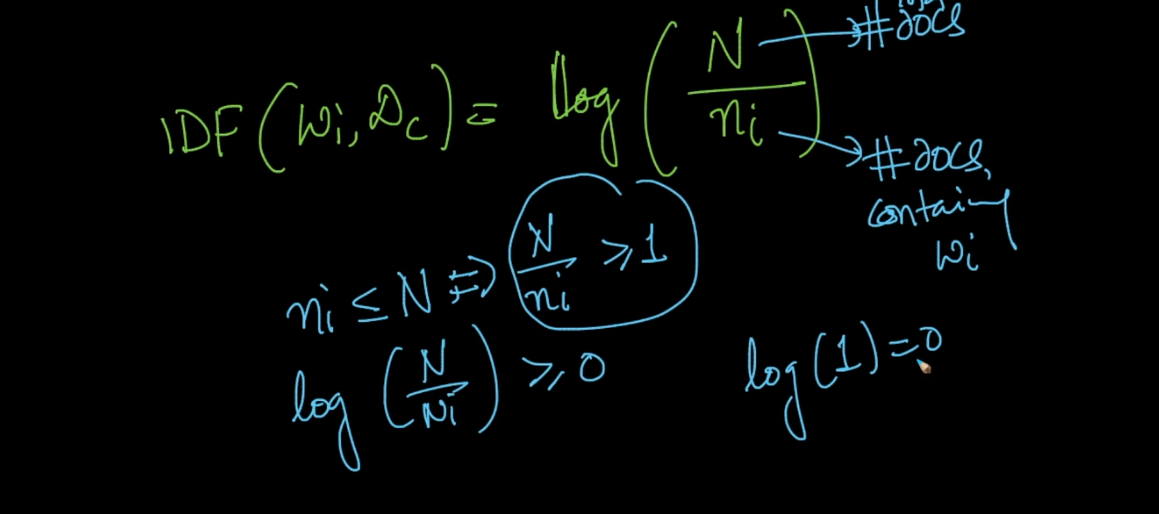 # docs
IDF(Wi, Dc) = log(N/ni)
# docs,
containing
Wi
ni ≤ N ⇒ N/ni ≥ 1
log(N/Ni) ≥ 0
log(1) = 0